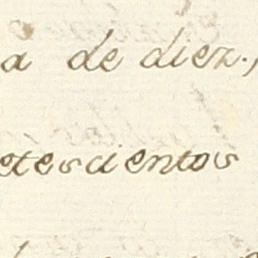 a de diez.,
etescientos